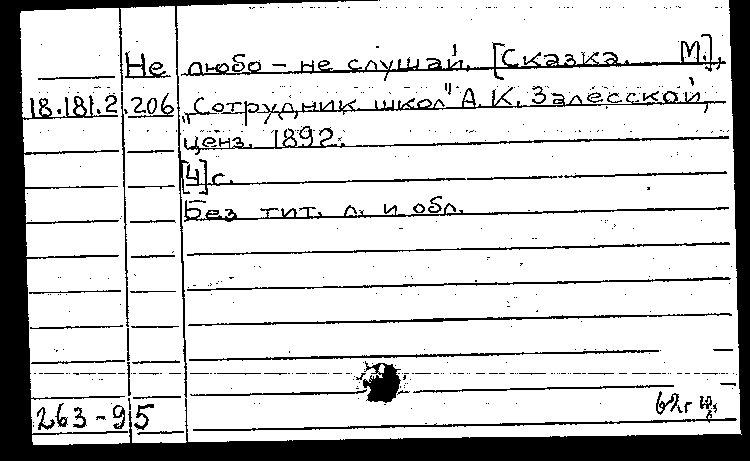 Не любо - не слушай. [Сказка. М.],
18.181.2.206 "Сотрудник школ" А.К. Залесской,
ценз. 1892.
[4] с.
Без тит. л. и обл.
263-95